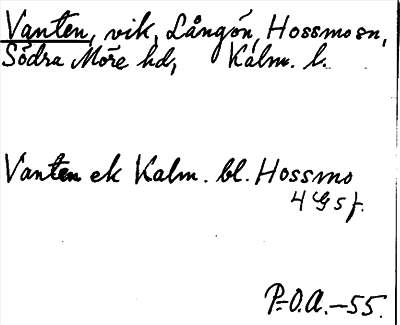 Vanten, vik, Långön, Hossmosn,
Södra Möre hd, Kalm. l.
Vanten ek Kalm. bl. Hossmo
4 G s f.
P.-O.A.-55.